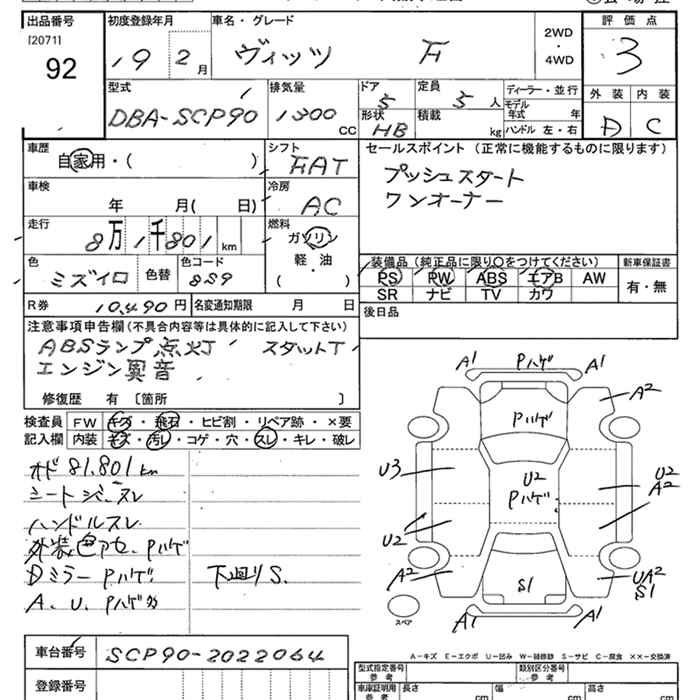 出品番号 初度登録年月 車名・グレード 評価点
[2071]
92
19 2月 ヴィッツ F 2WD・4WD 3
型式 排気量 ドア 定員 ディーラー・並行 外装 内装
DBA-SCP90 1300CC 5 5人 モデル年式 年 D C
形状 積載 ハンドル 左・右
HB kg
車歴 シフト セールスポイント(正常に機能するものに限ります)
自家用・( ) FAT プッシュスタート
車検 冷房 ワンオーナー
年 月( 日) AC
走行 燃料
8万1千801km ガソリン
軽・油
( )
色 色替 色コード 装備品(純正品に限り○をつけてください) 新車保証書
ミズイロ 8S9 PS PW ABS エアB AW 有・無
SR ナビ TV カワ
R券 10,490円 名変通知期限 月 日 後日品
注意事項申告欄(不具合内容等は具体的に記入して下さい)
ABSランプ点灯 スタットT
エンジン異音
修復歴 有 〔箇所 〕
検査員 FW キズ・飛石・ヒビ割・リペア跡・×要
記入欄 内装 キズ・汚レ・コゲ・穴・スレ・キレ・破レ
オド 81,801km
シートシミ・スレ
ハンドルスレ
外装色アセ、Pハゲ
Dミラー Pハゲ 下廻りS.
A、U、Pハゲ多
A1 Pハゲ A1
A2
Pハゲ
U3 U2 U2
Pハゲ A2
U2
A2 UA2
S1 S1
スペア A1 A1
A-キズ E-エクボ U-凹み W-補修跡 S-サビ C-腐食 ××-交換済
車台番号 SCP90-2022064
型式指定番号 参考 類別区分番号 参考
登録番号 車庫証明用 参考 長さ cm 幅 cm 高さ cm